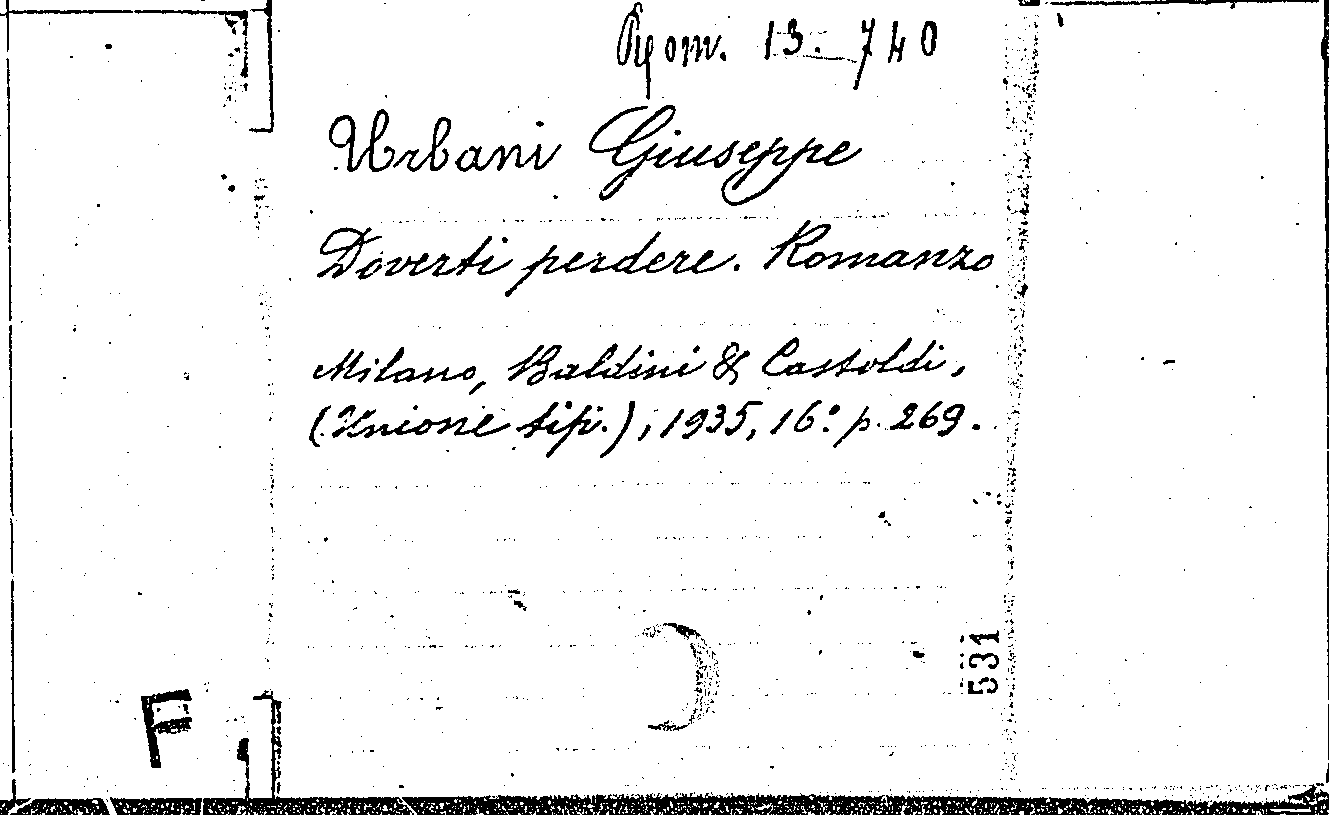 Rom. 13.-740
Urbani Giuseppe
Doverti perdere. Romanzo
Milano, Baldini & Castoldi,
(Unione tip.), 1935, 16.° p. 269.
531
F